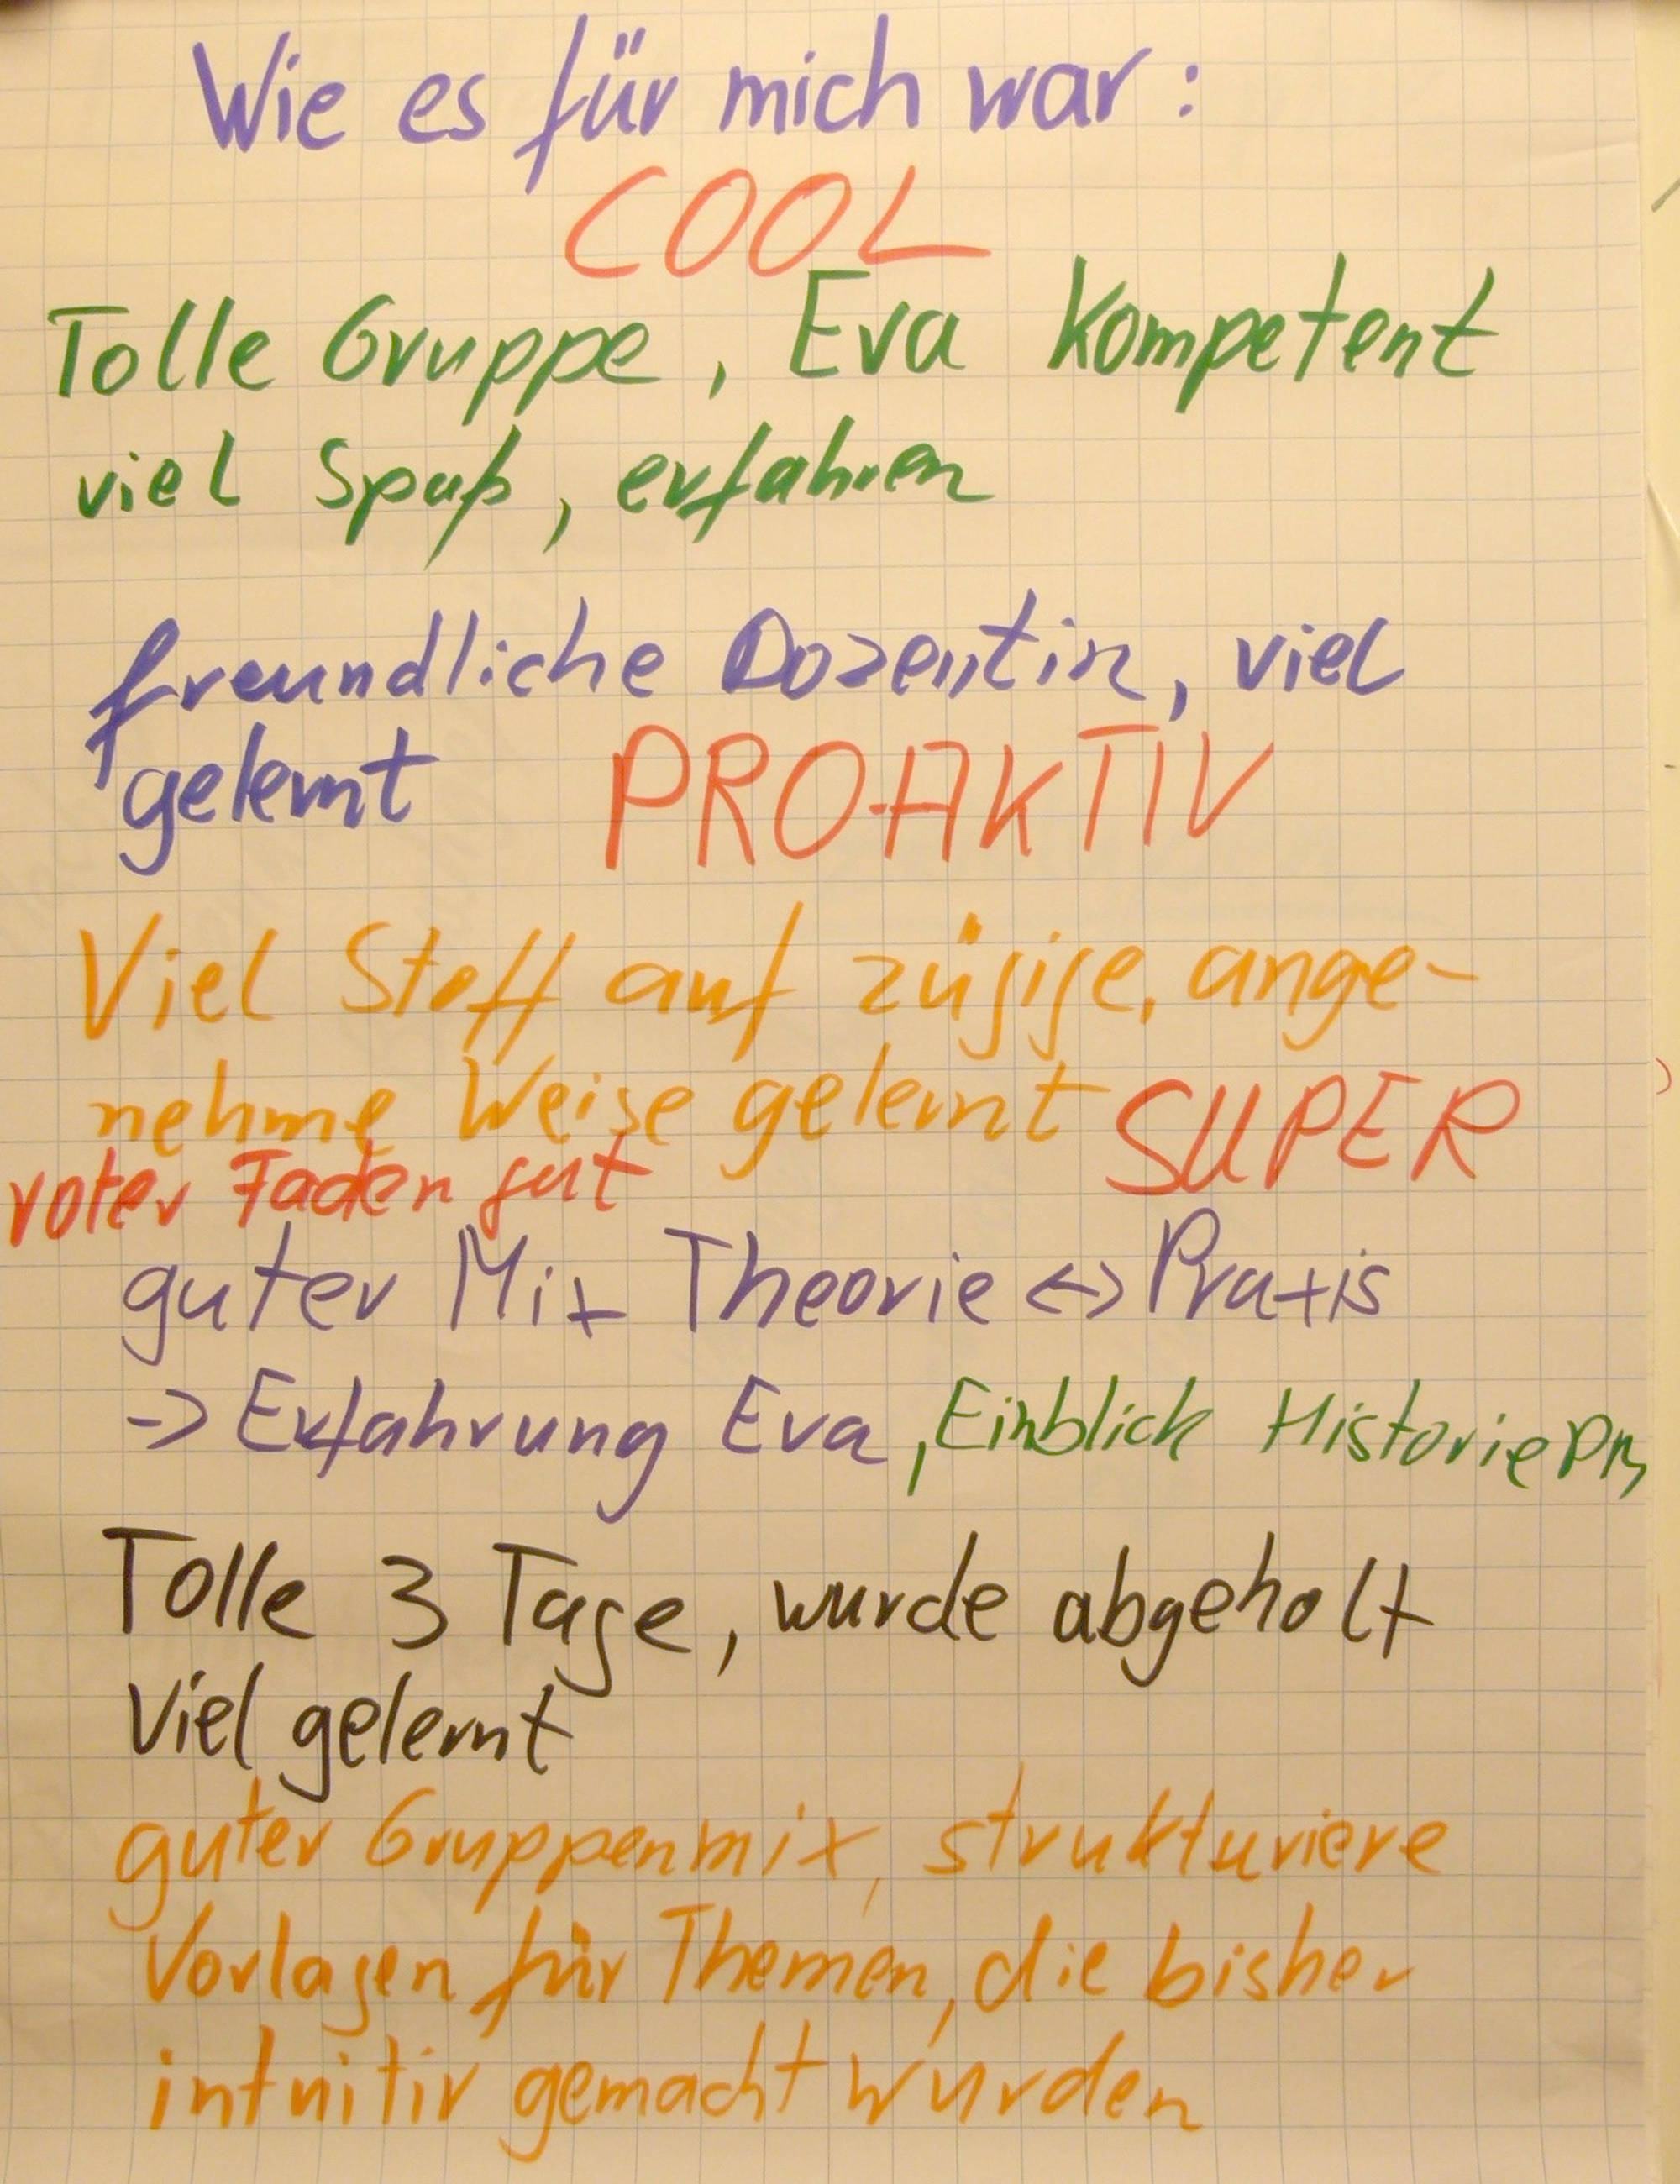 Wie es für mich war:
COOL
Tolle Gruppe, Eva kompetent
viel Spaß, erfahren
freundliche Dozentin, viel
gelernt PROAKTIV
Viel Stoff auf zügige, ange-
nehme Weise gelernt SUPER
roter Faden gut
guter Mix Theorie <-> Praxis
-> Erfahrung Eva, Einblick Historie PM
Tolle 3 Tage, wurde abgeholt
Viel gelernt
guter Gruppenmix, strukturiere
Vorlagen für Themen, die bisher
intuitiv gemacht wurden